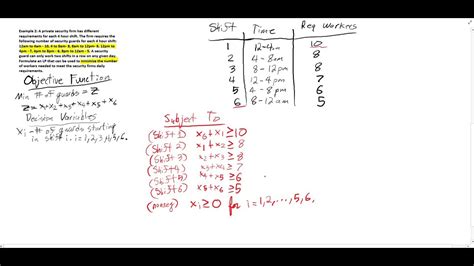 Example 2: A private security firm has different
requirements for each 4 hour shift. The firm requires the
following number of security guards for each 4 hour shift:
12am to 4am - 10, 4 to 8am- 8, 8am to 12pm- 8, 12pm to
4pm - 7, 4pm to 8pm - 6, 8pm to 12am - 5. A security
guard can only work two shifts in a row on any given day.
Formulate an LP that can be used to minimize the number
of workers needed to meet the security firms daily
requirements.
Objective Function
Min # of guards = Z
Z = x1+x2+x3+x4+x5+x6
Decision Variables
xi - # of guards starting
in shift i. i=1,2,3,4,5,6.
Shift Time Req Workers
1 12-4am 10
2 4-8am 8
3 8-12pm 8
4 12-4pm 7
5 4-8pm 6
6 8-12am 5
Subject To
(Shift 1) x6+x1 ≥10
(Shift 2) x1+x2 ≥8
(Shift 3) x2+x3 ≥8
(Shift 4) x3+x4 ≥7
(Shift 5) x4+x5 ≥6
(Shift 6) x5+x6 ≥5
(nonneg) xi ≥0 for i=1,2,...,5,6.